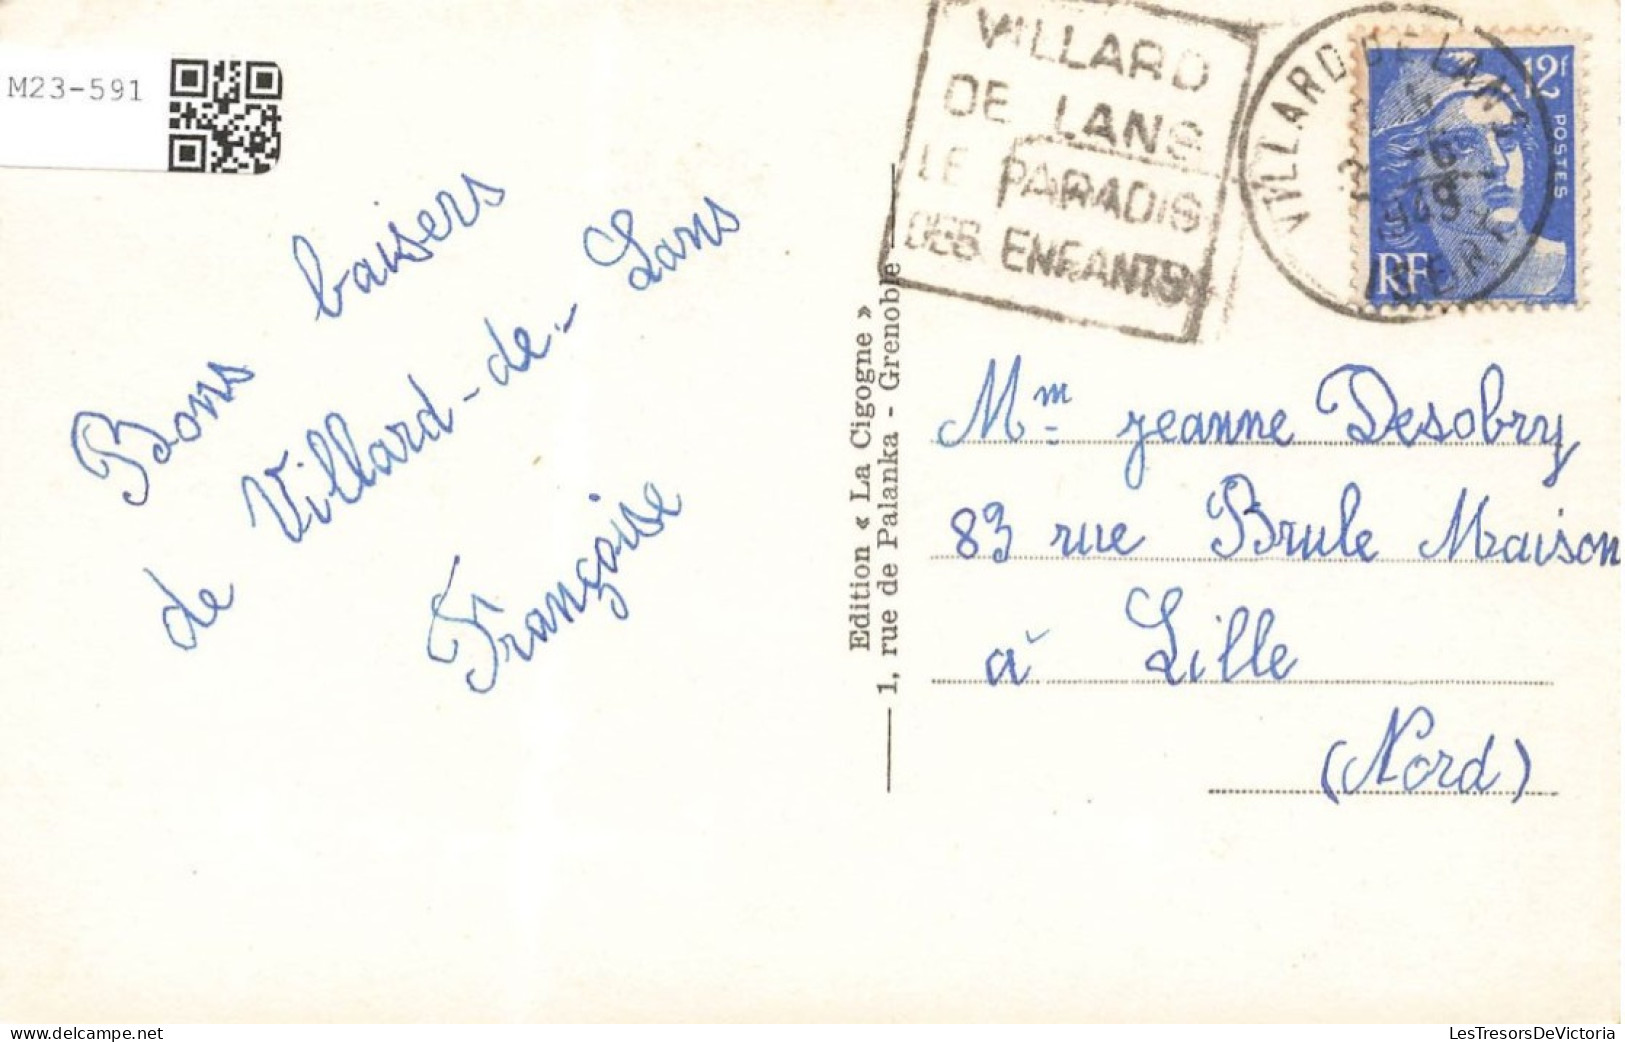 M23-591
VILLARD
DE LANS
LE PARADIS
DES ENFANTS
VILLARD DE LANS
1949
ISERE
12f
POSTES
RF
Bons baisers
de Villard-de-Lans
Françoise
Edition « La Cigogne »
1, rue de Palanka - Grenoble
Mme Jeanne Desobry
83 rue Brule Maison
à Lille
(Nord)
delcampe.net
LesTresorsDeVictoria